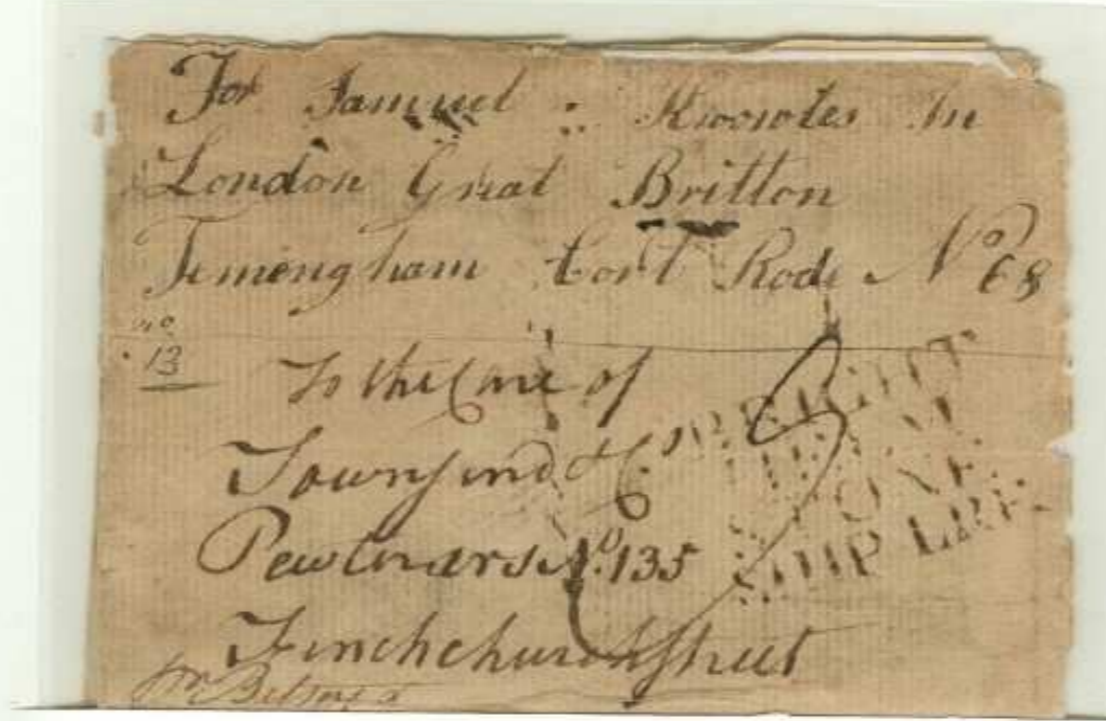 For Samuel : Knowles In
London Great Britton
Temengham Cort Rode No 68
no
13
To the Care of
Townsend & Co
Pewterars No. 135
Finchchurch Street
SHIP LRE